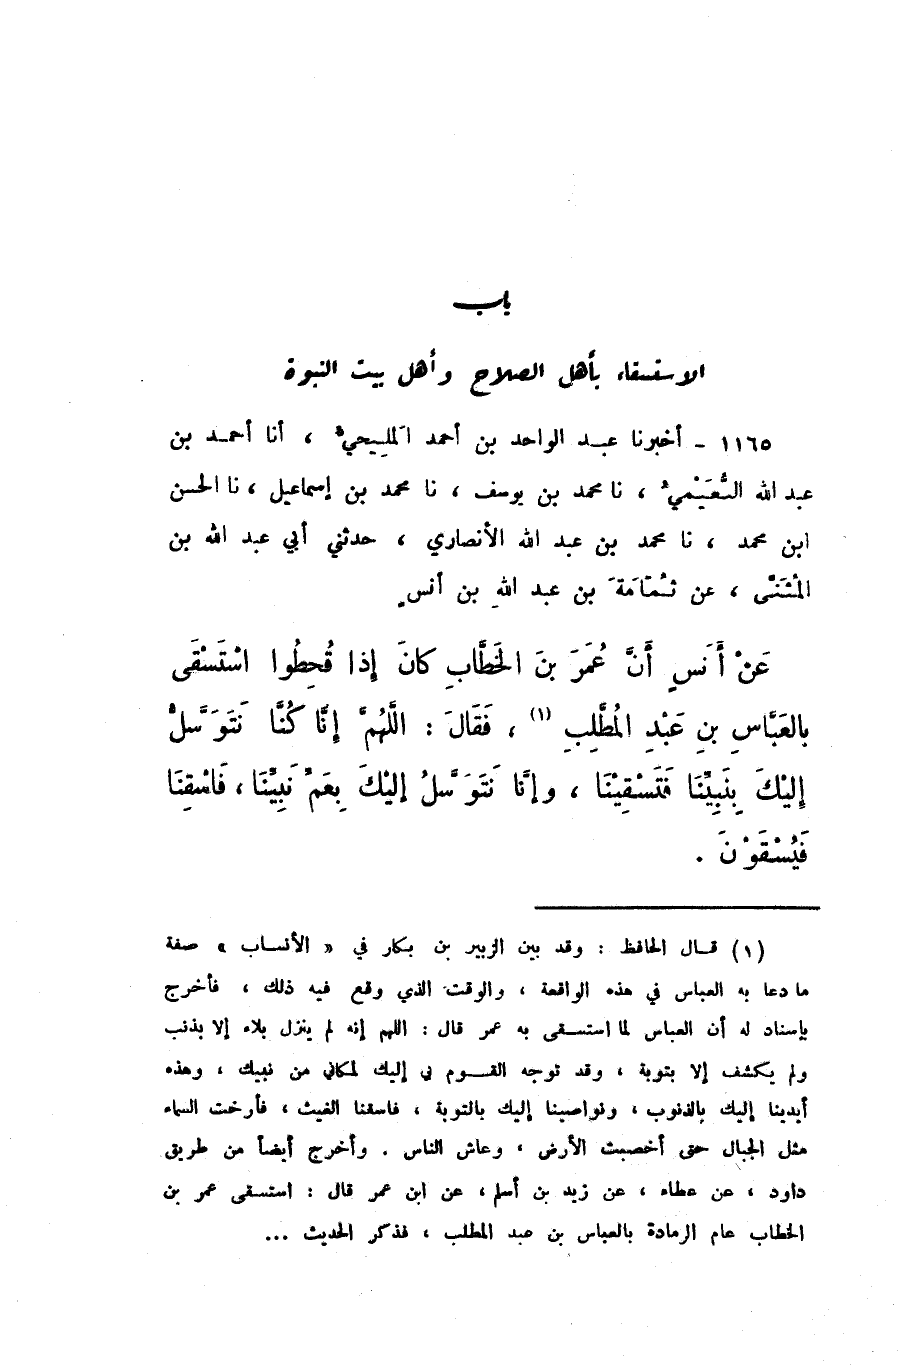 باب
الاستسقاء بأهل الصلاح وأهل بيت النبوة
١١٦٥ - أخبرنا عبد الواحد بن أحمد المليحيُّ ، أنا أحمد بن
عبد الله النُّعَيْمي ، نا محمد بن يوسف ، نا محمد بن إسماعيل ، نا الحسن
ابن محمد ، نا محمد بن عبد الله الأنصاري ، حدثني أبي عبد الله بن
المُثَنَّى ، عن ثُمَامَةَ بن عبد اللهِ بن أنسٍ
عَنْ أَنَسٍ أَنَّ عُمَرَ بنَ الخَطَّابِ كانَ إِذا قُحِطُوا اسْتَسْقَى
بالعَبَّاسِ بنِ عَبْدِ المُطَّلِبِ (١) ، فَقَالَ : اللَّهُمَّ إِنَّا كُنَّا نَتَوَسَّلُ
إِليْكَ بِنَبِيِّنَا فَتَسْقِيْنَا ، وإِنَّا نَتَوَسَّلُ إِليْكَ بِعَمِّ نَبِيِّنَا ، فَاسْقِنَا
فَيُسْقَوْنَ .
(١) قال الحافظ : وقد بين الزبير بن بكار في « الأنساب » صفة
ما دعا به العباس في هذه الواقعة ، والوقت الذي وقع فيه ذلك ، فأخرج
بإسناد له أن العباس لما استسقى به عمر قال : اللهم إنه لم ينزل بلاء إلا بذنب
ولم يكشف إلا بتوبة ، وقد توجه القوم بي إليك لمكاني من نبيك ، وهذه
أيدينا إليك بالذنوب ، ونواصينا إليك بالتوبة ، فاسقنا الغيث ، فأرخت السماء
مثل الجبال حتى أخصبت الأرض ، وعاش الناس . وأخرج أيضاً من طريق
داود ، عن عطاء ، عن زيد بن أسلم ، عن ابن عمر قال : استسقى عمر بن
الخطاب عام الرمادة بالعباس بن عبد المطلب ، فذكر الحديث ...